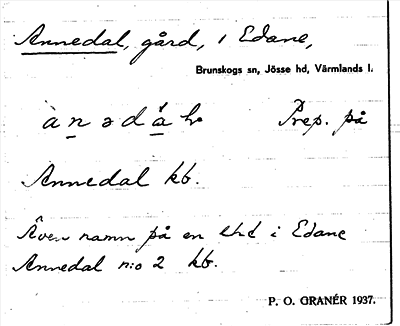 Annedal, gård, i Edane,
Brunskogs sn, Jösse hd, Värmlands l.
Prep. på
Annedal kb.
Även namn på en lhd i Edane
Annedal n:o 2 kb.
P. O. GRANÉR 1937.